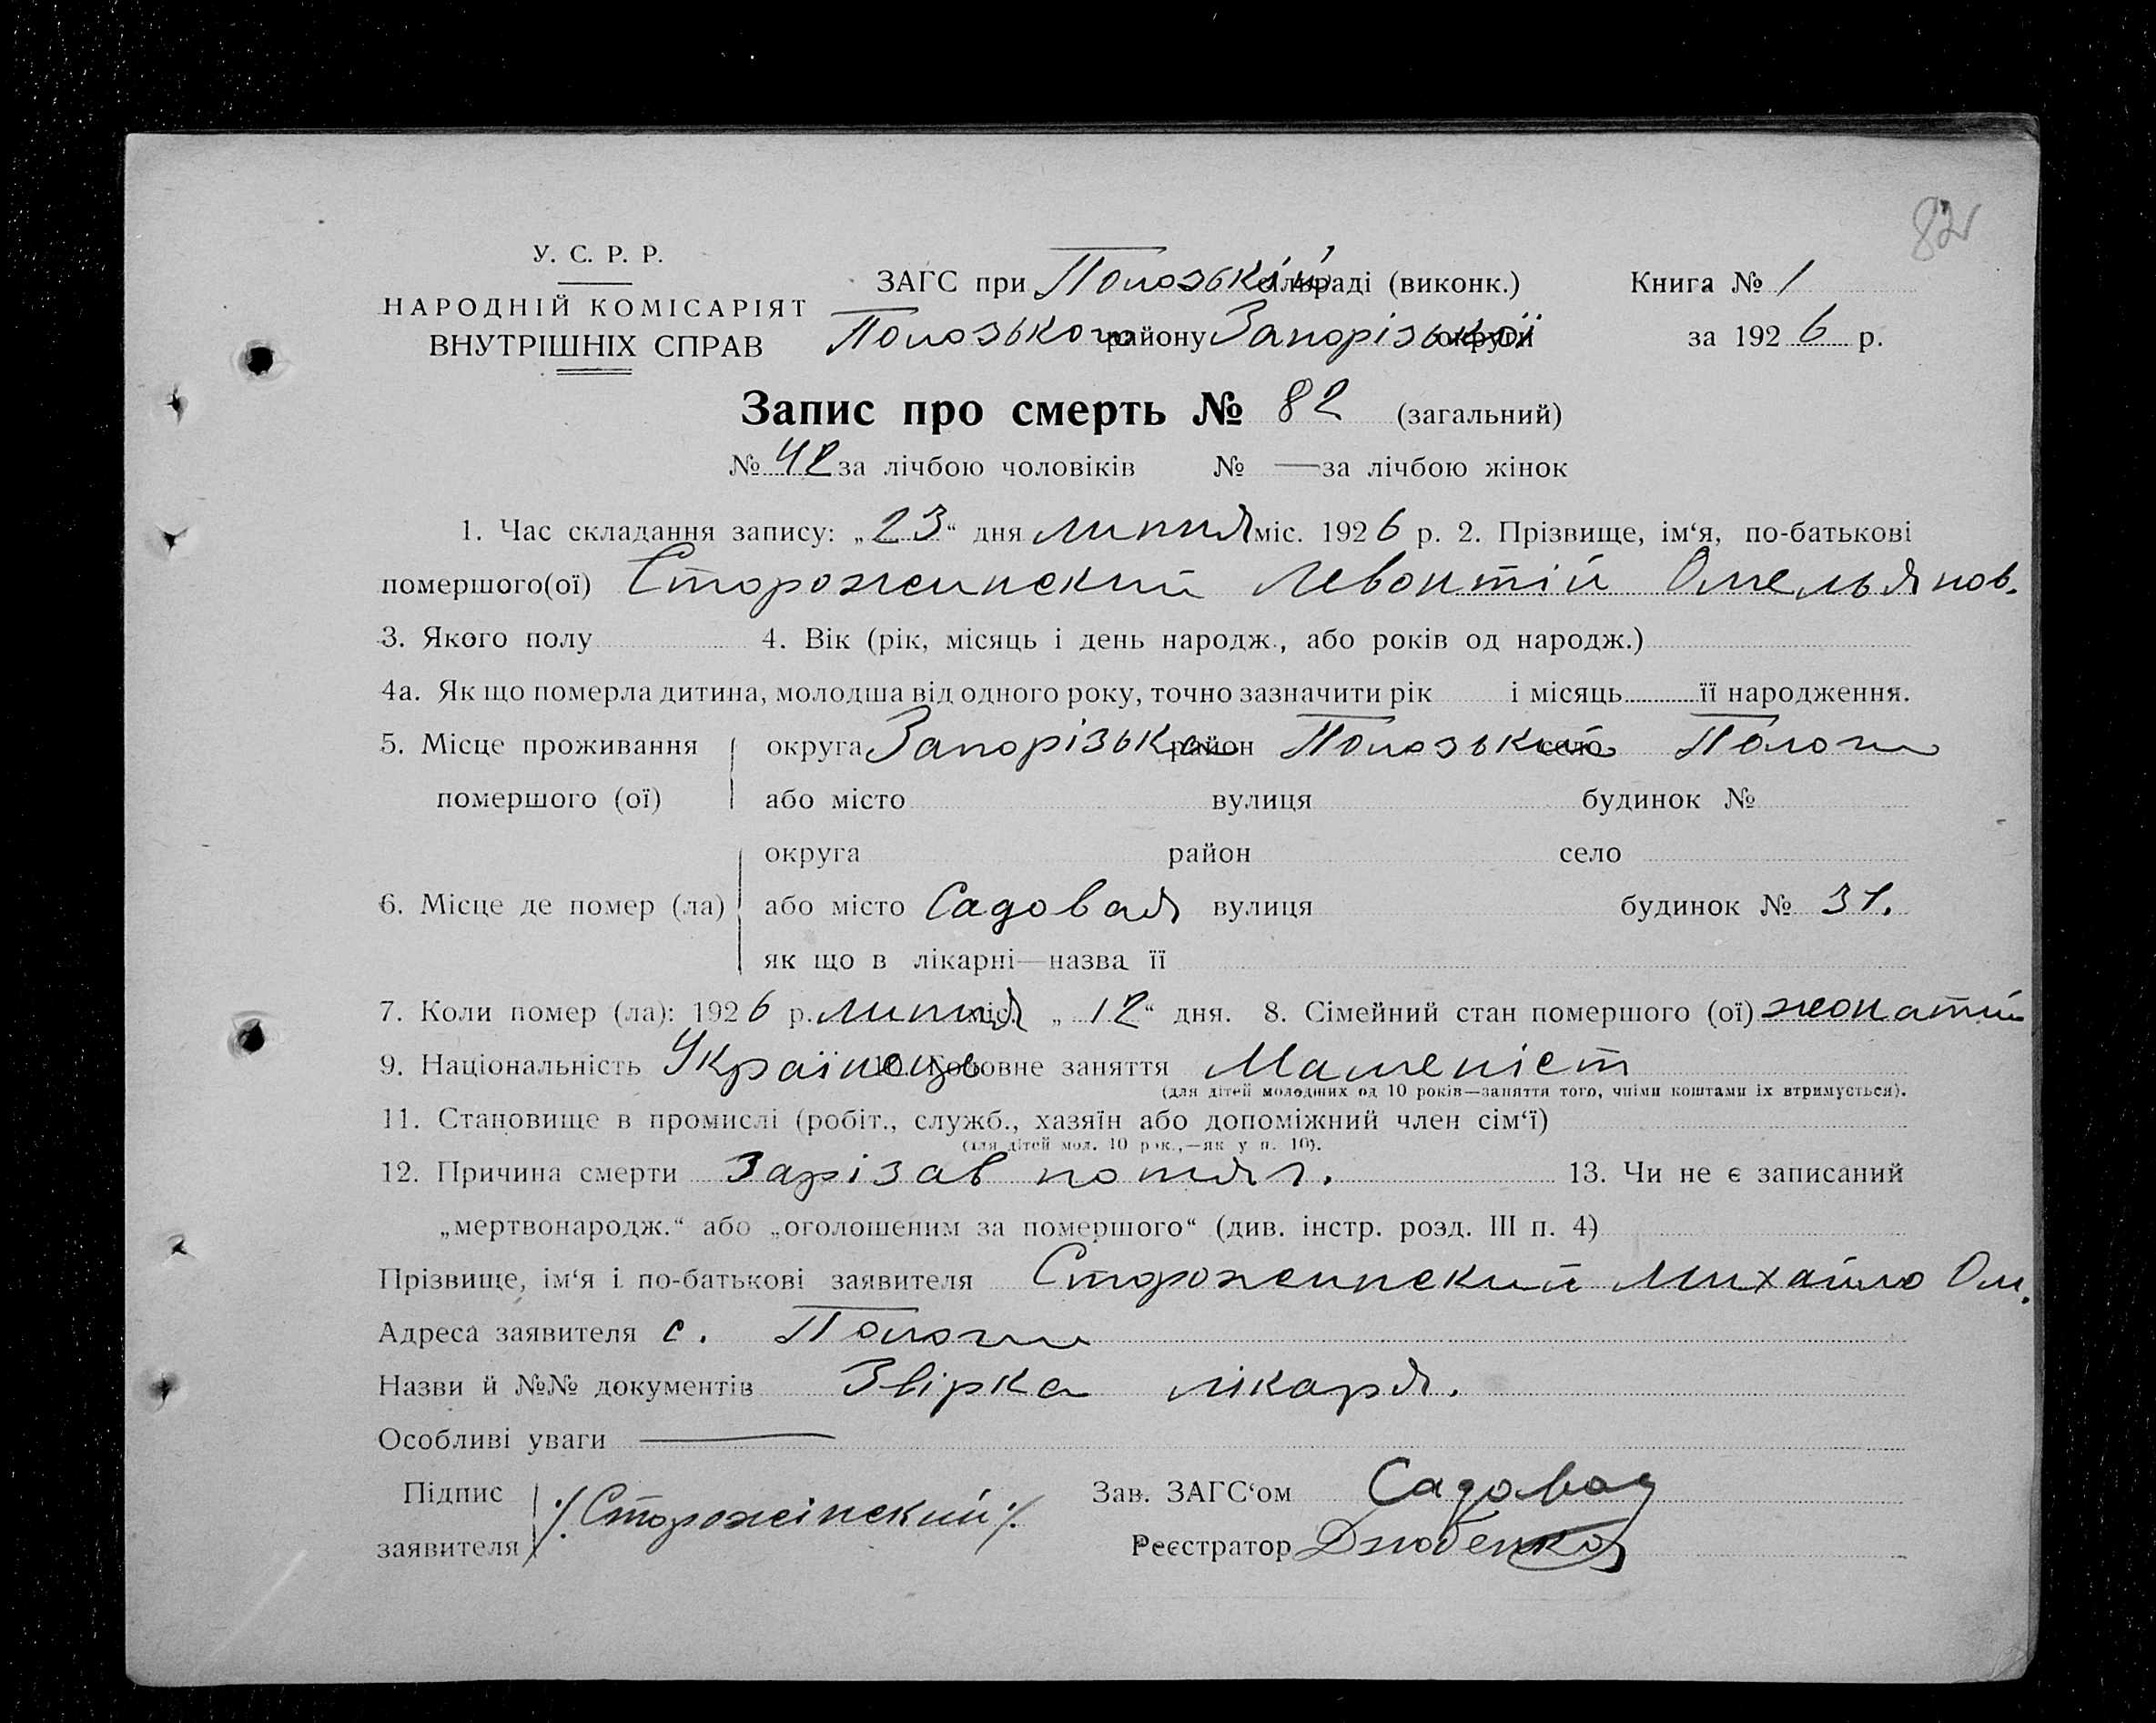 82
У. С. Р. Р.
НАРОДНІЙ КОМІСАРІЯТ
ВНУТРІШНІХ СПРАВ
ЗАГС при Пологській сільраді (виконк.)
Пологського району Запорізької округи
Книга № 1
за 1926 р.
Запис про смерть № 82 (загальний)
№ 42 за лічбою чоловіків № — за лічбою жінок
1. Час складання запису: „23“ дня липня міс. 1926 р. 2. Прізвище, ім‘я, по-батькові
помершого(ої) Стороженнский Левонтій Омельянов.
3. Якого полу 4. Вік (рік, місяць і день народж., або років од народж.)
4а. Як що померла дитина, молодша від одного року, точно зазначити рік і місяць її народження.
5. Місце проживання округа Запорізька район Пологський село Пологи
помершого (ої) або місто вулиця будинок №
округа район село
6. Місце де помер (ла) або місто Садовая вулиця будинок № 31.
як що в лікарні—назва її
7. Коли помер (ла): 1926 р. липня міс. „12“ дня. 8. Сімейний стан помершого (ої) жонатий
9. Національність Українець 10. Головне заняття Машеніст
(для дітей молодших од 10 років—заняття того, чиїми коштами їх втримується).
11. Становище в промислі (робіт., служб., хазяїн або допоміжний член сім‘ї)
(для дітей мол. 10 рок.,—як у п. 10).
12. Причина смерти Зарізав потяг. 13. Чи не є записаний
„мертвонародж.“ або „оголошеним за помершого“ (див. інстр. розд. III п. 4)
Прізвище, ім‘я і по-батькові заявителя Стороженнский Михайло Ом.
Адреса заявителя с. Пологи
Назви й №№ документів Звірка лікаря.
Особливі уваги —
Підпис
заявителя ./. Сторожінский ./.
Зав. ЗАГС‘ом Садовая
Реєстратор